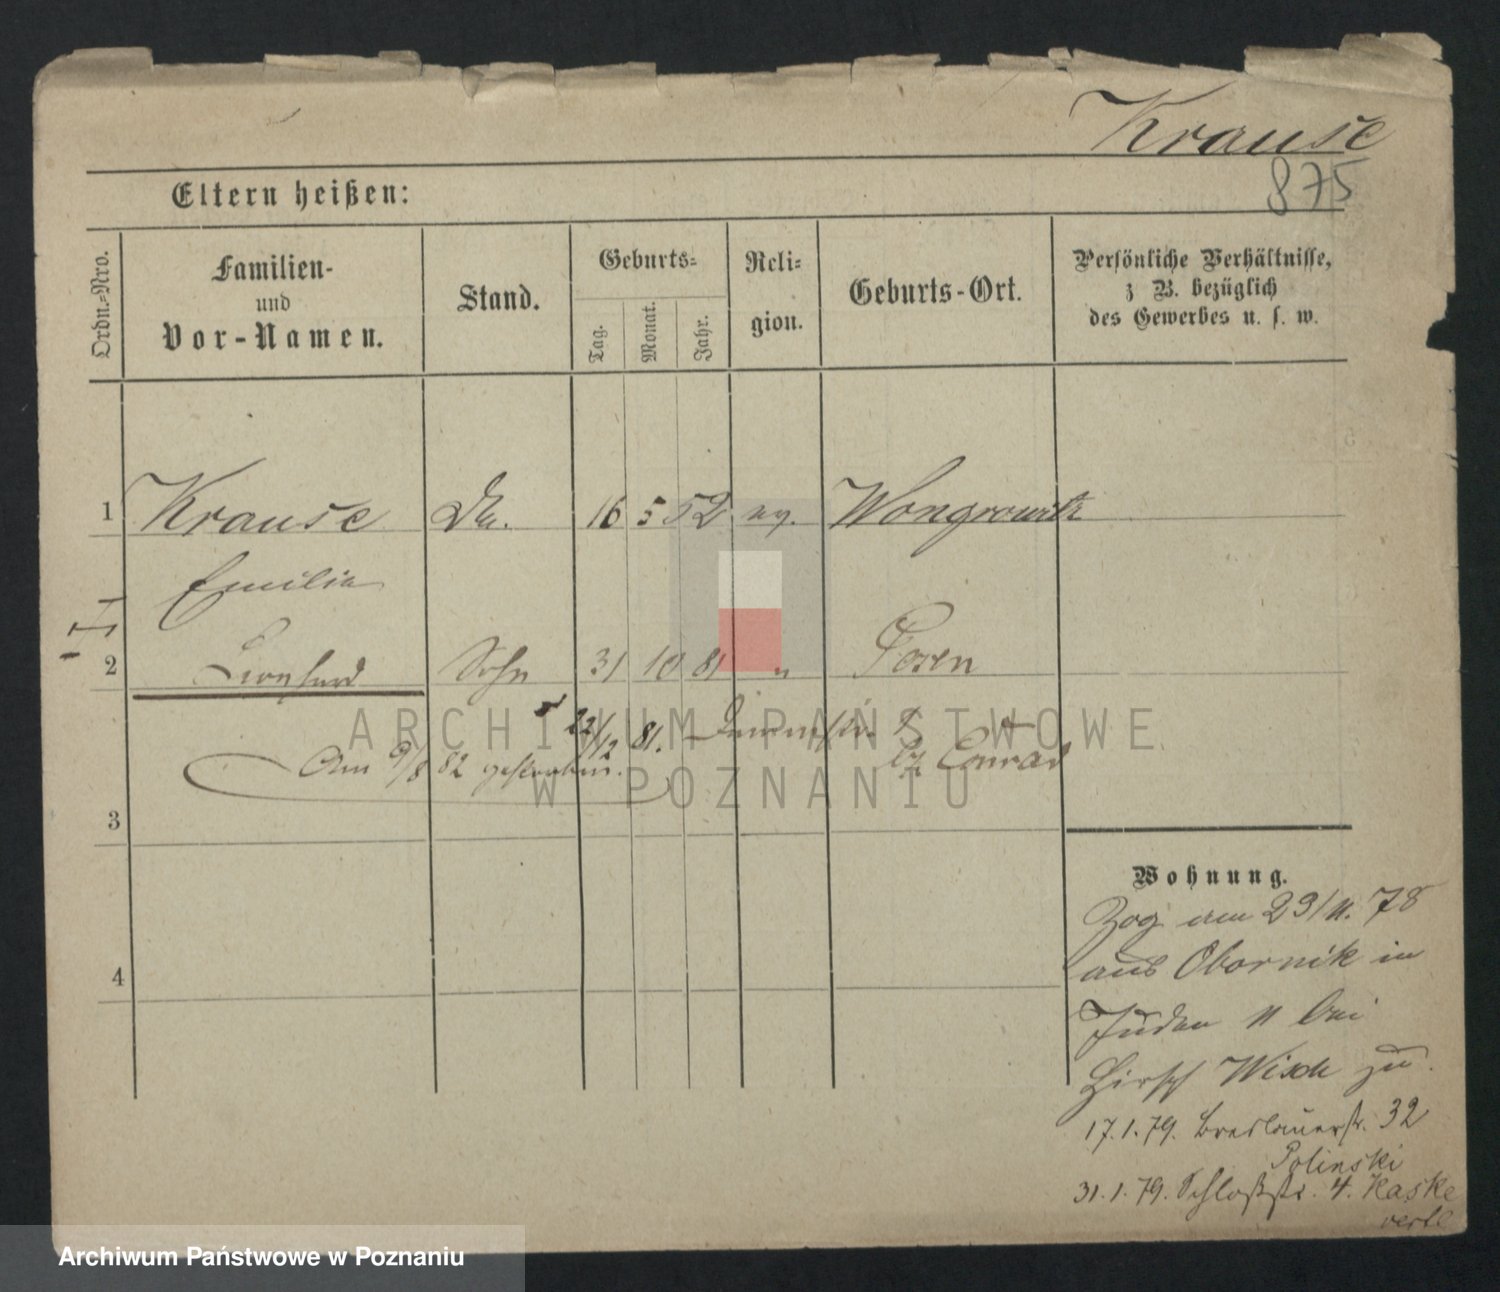 Krause
875
Eltern heißen:
Ordn.=Nro.
Familien-
und
Vor-Namen.
Stand.
Geburts=
Tag.
Monat.
Jahr.
Reli=
gion.
Geburts-Ort.
Persönliche Verhältnisse,
z B. bezüglich
des Gewerbes u. s. w.
1 Krause 16 5 52 Wongrowitz
Emilie
2 Sohn 31 10 81 " Posen
22/12 81.
Conrad
Am 9/8 82 gestorben.
3
4
Wohnung.
Zog am 23/11. 78
aus Obornik in
Juden 11 bei
Hirsch Wisch zu.
17.1.79. Breslauerstr. 32
Polinski
31.1.79. Schloßstr. 4. Kaske
verte
ARCHIWUM PAŃSTWOWE
W POZNANIU
Archiwum Państwowe w Poznaniu